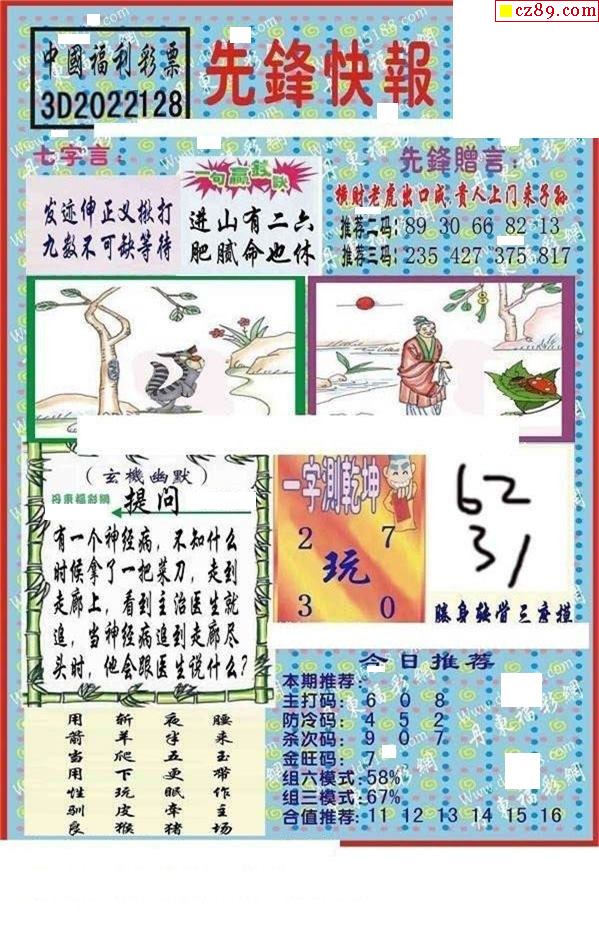 cz89.com
中國福利彩票
3D2022128
先鋒快報
七字言：
发迹伸正义揪打
九数不可缺等待
一句赢錢訣
进山有二六
肥腻命也休
先鋒贈言：
横财老虎出口成，贵人上门来子孙
推荐二码：89 30 66 82 13
推荐三码：235 427 375 817
（玄機幽默）
丹東福彩網
提问
有一个神经病，不知什么
时候拿了一把菜刀，走到
走廊上，看到主治医生就
追，当神经病追到走廊尽
头时，他会跟医生说什么？
一字測乾坤
2 7
玩
3 0
62
31
今日推荐
本期推荐：
主打码：6 0 8
防冷码：4 5 2
杀次码：9 0 7
金旺码：7
组六模式：58%
组三模式：67%
合值推荐：11 12 13 14 15 16
腰来玉带作主场
夜半五更眠牵猪
斩羊爬下玩皮猴
用箭当用性驯良